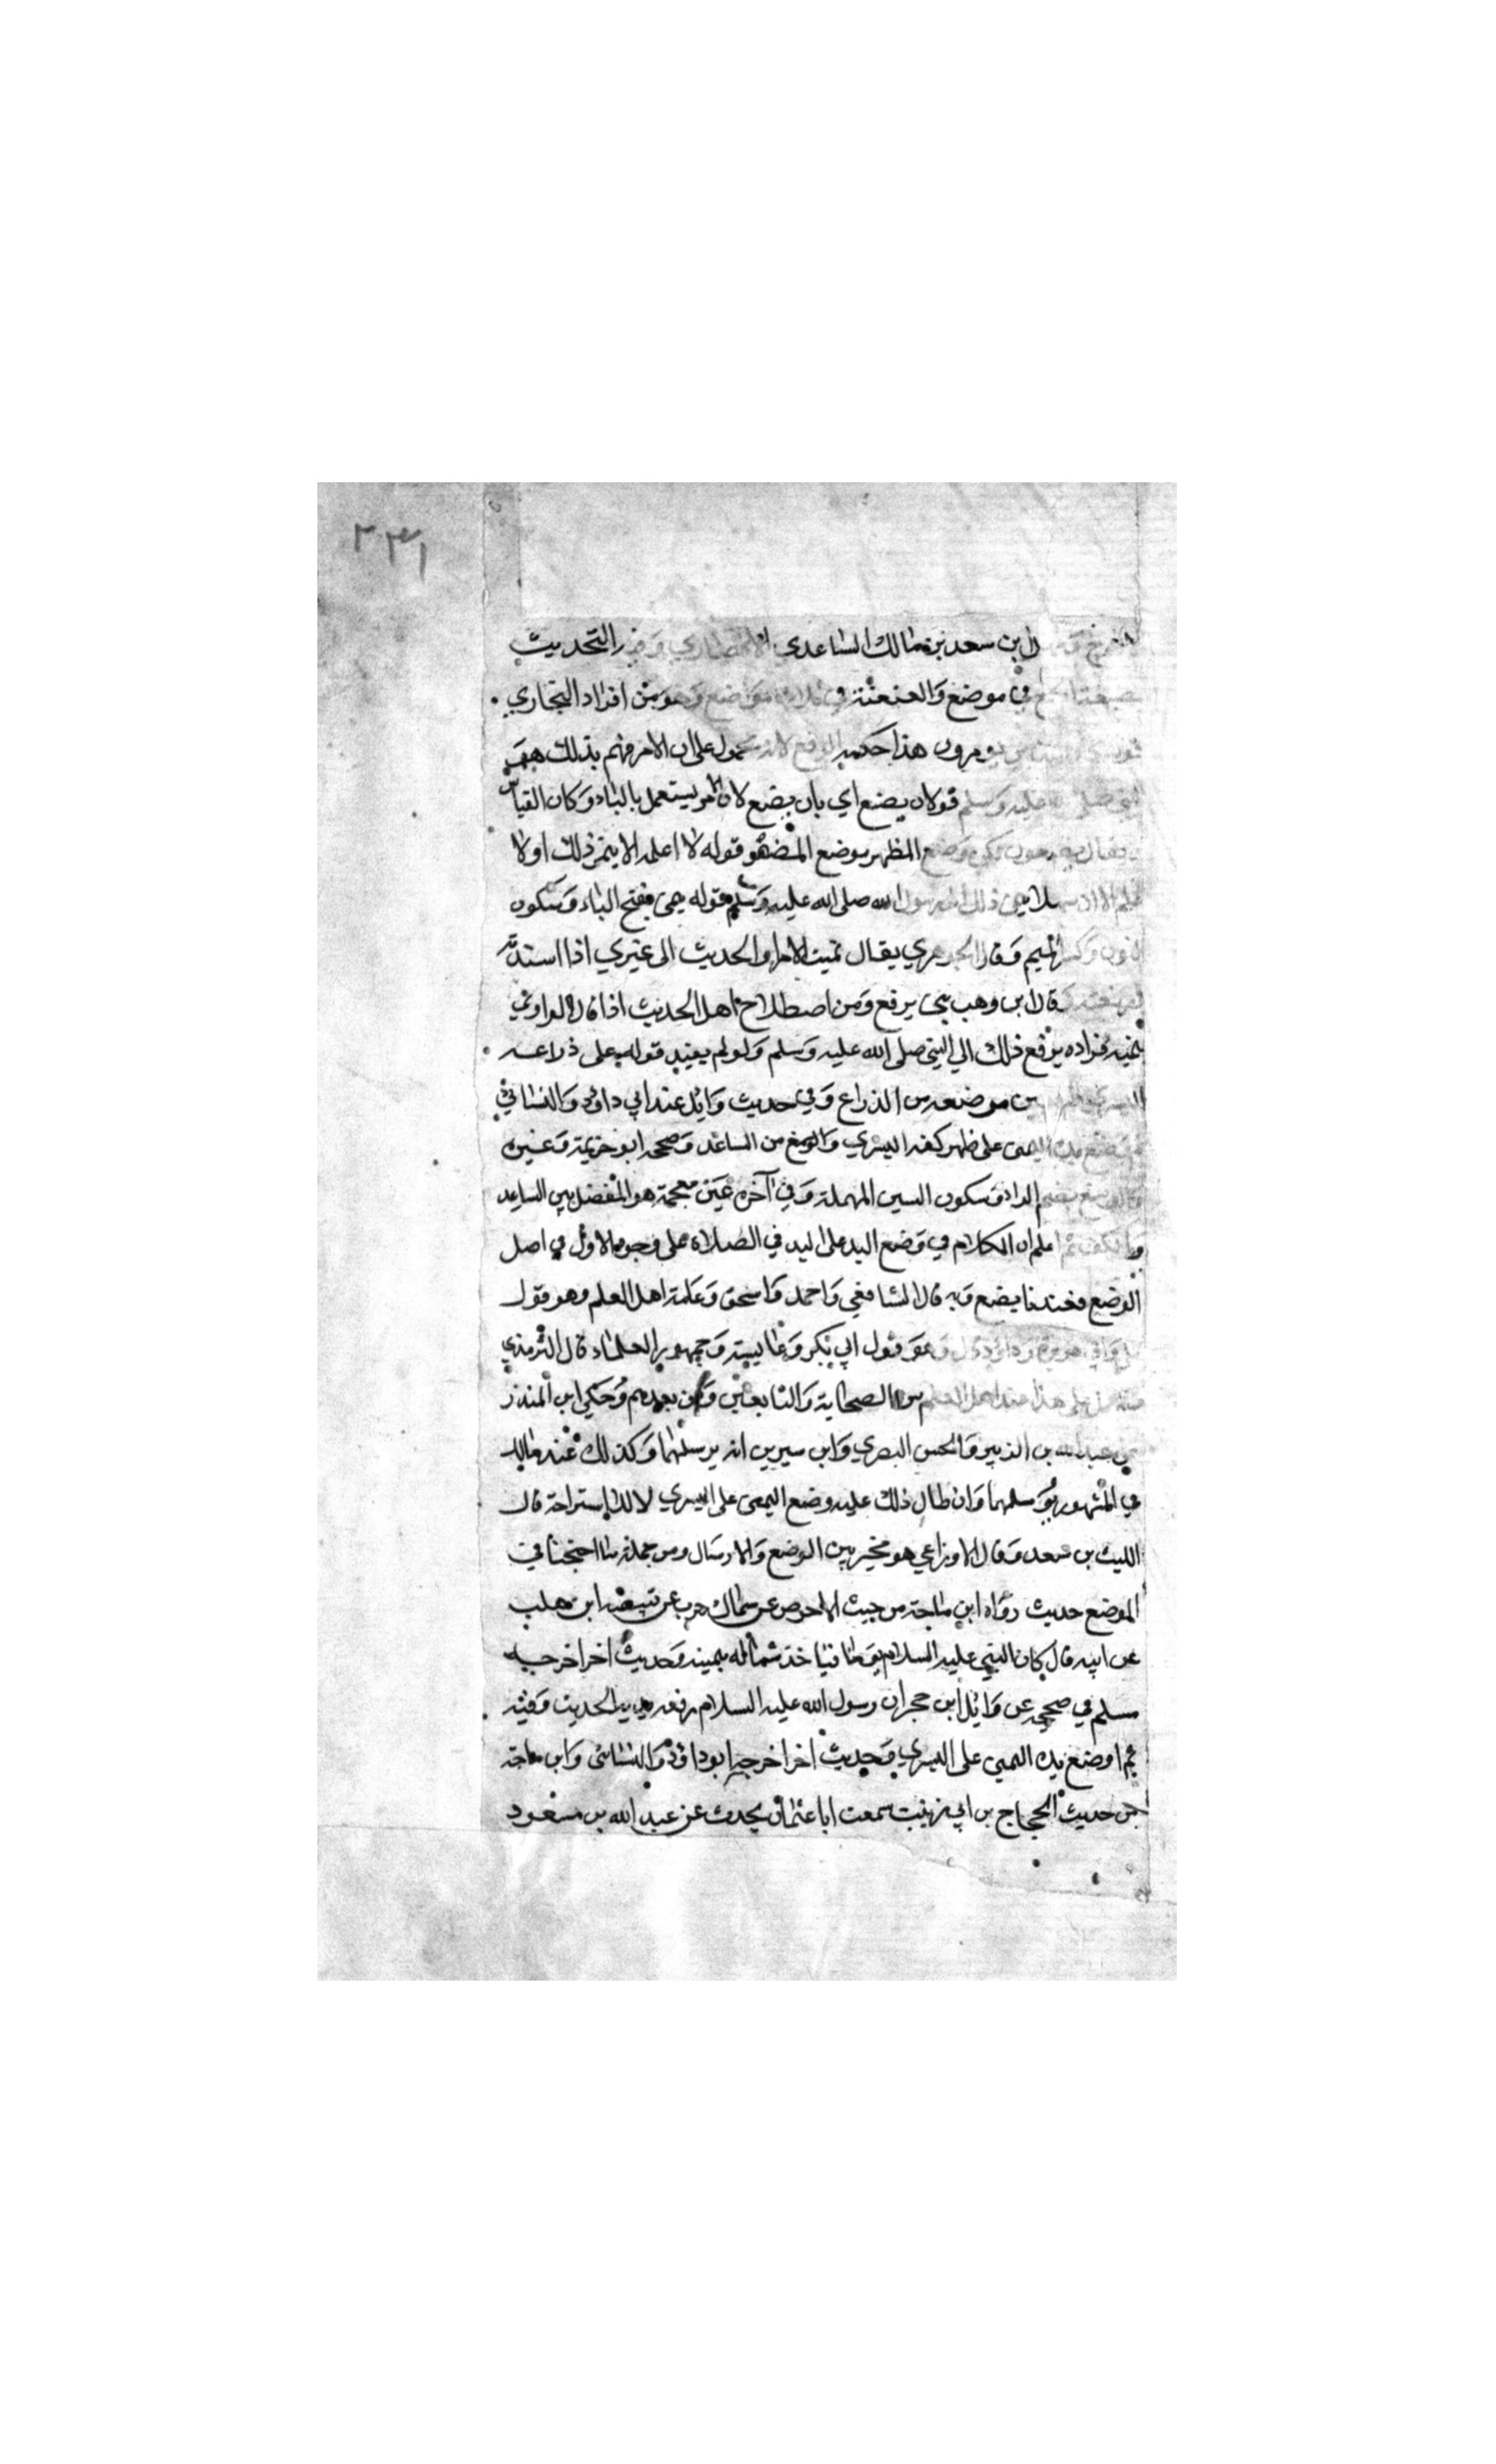 ٢٣١
بن سعد بن مالك الساعدي الانصاري وفيه التحديث
في موضع والعنعنة في ثلاثة مواضع وهو من افراد البخاري
يومرون هذا حكمه الرفع لانه محمول على ان الامر فهم بذلك هو
صلى الله عليه وسلم قوله ان يضع اي بان يضع لان الامر يستعمل بالباء وكان القياس
ان يقال يضعون لكن وضع المظهر موضع المضمر قوله لا اعلمه الا ينمي ذلك اولا
ذلك الى رسول الله صلى الله عليه وسلم قوله ينمي بفتح الياء وسكون
النون وكسر الميم وقال الجوهري يقال نميت الامر او الحديث الى غيري اذا اسندته
قال ابن وهب ينمى يرفع ومن اصطلاح اهل الحديث اذا قال الراوي
ينميه فمراده يرفع ذلك الى النبي صلى الله عليه وسلم ولو لم يقيد قوله على ذراعه
من موضعه من الذراع وفي حديث وائل عند ابي داود والنسائي
وضع يده اليمنى على ظهر كفه اليسرى والرسغ من الساعد وصححه ابو خزيمة وغيره
الراء وسكون السين المهملة وفي اخره غين معجمة هو المفصل بين الساعد
والكف ثم اعلم ان الكلام في وضع اليد على اليد في الصلاة على وجوه الاول في اصل
الوضع فعندنا يضع وبه قال الشافعي واحمد واسحق وعامة اهل العلم وهو قول
علي وابي هريرة وهو قول ابي بكر وعائشة وجمهور العلماء قال الترمذي
والعمل على هذا عند اهل العلم من الصحابة والتابعين ومن بعدهم وحكى ابن المنذر
عن عبد الله بن الزبير والحسن البصري وابن سيرين انه يرسلهما وكذلك عند مالك
في المشهور يرسلهما وان طال ذلك عليه وضع اليمنى على اليسرى للاستراحة قال
الليث بن سعد وقال الاوزاعي هو مخير بين الوضع والارسال ومن جملة ما احتججنا في
الموضع حديث رواه ابن ماجة من حيث الاحوص عن سماك حرب عن قبيصة ابن مهلب
عن ابيه قال كان النبي عليه السلام يؤمنا فياخذ شماله بيمينه وحديث اخر اخرجه
مسلم في صحيحه عن وائل ابن حجر ان رسول الله عليه السلام رفع يديه الحديث وفيه
ثم اوضع يده اليمنى على اليسرى وحديث اخر اخرجه ابو داود والنسائي وابن ماجة
من حديث الحجاج بن ابي زينب سمعت ابا عثمان يحدث عن عبد الله بن مسعود